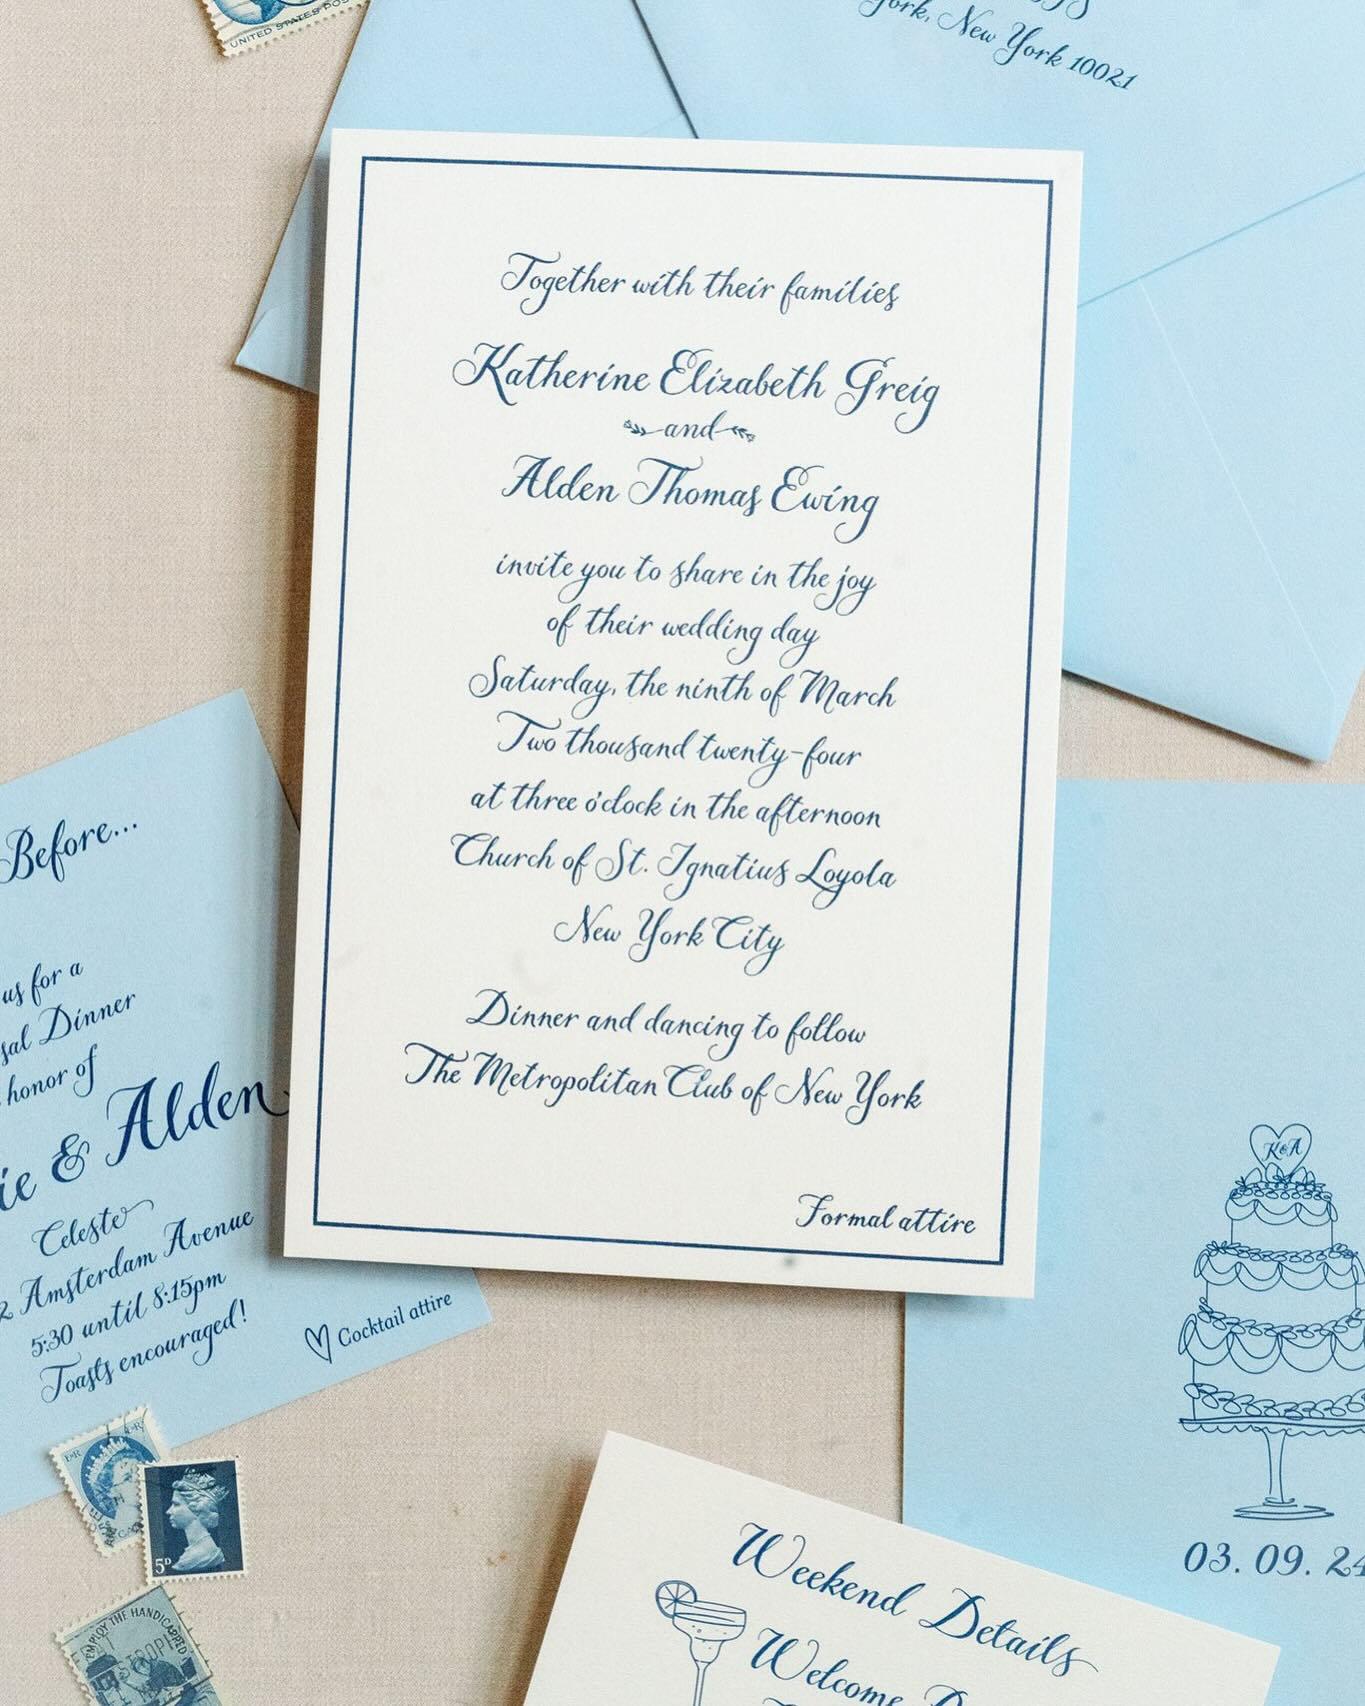 UNITED STATES POS
York, New York 10021
Together with their families
Katherine Elizabeth Greig
and
Alden Thomas Ewing
invite you to share in the joy
of their wedding day
Saturday, the ninth of March
Two thousand twenty-four
at three o'clock in the afternoon
Church of St. Ignatius Loyola
New York City
Dinner and dancing to follow
The Metropolitan Club of New York
Formal attire
Before...
us for a
sal Dinner
honor of
ie & Alden
Celeste
2 Amsterdam Avenue
5:30 until 8:15pm
Toasts encouraged!
Cocktail attire
5D
EMPLOY THE HANDICAPPED
K&A
03. 09. 24
Weekend Details
Welcome